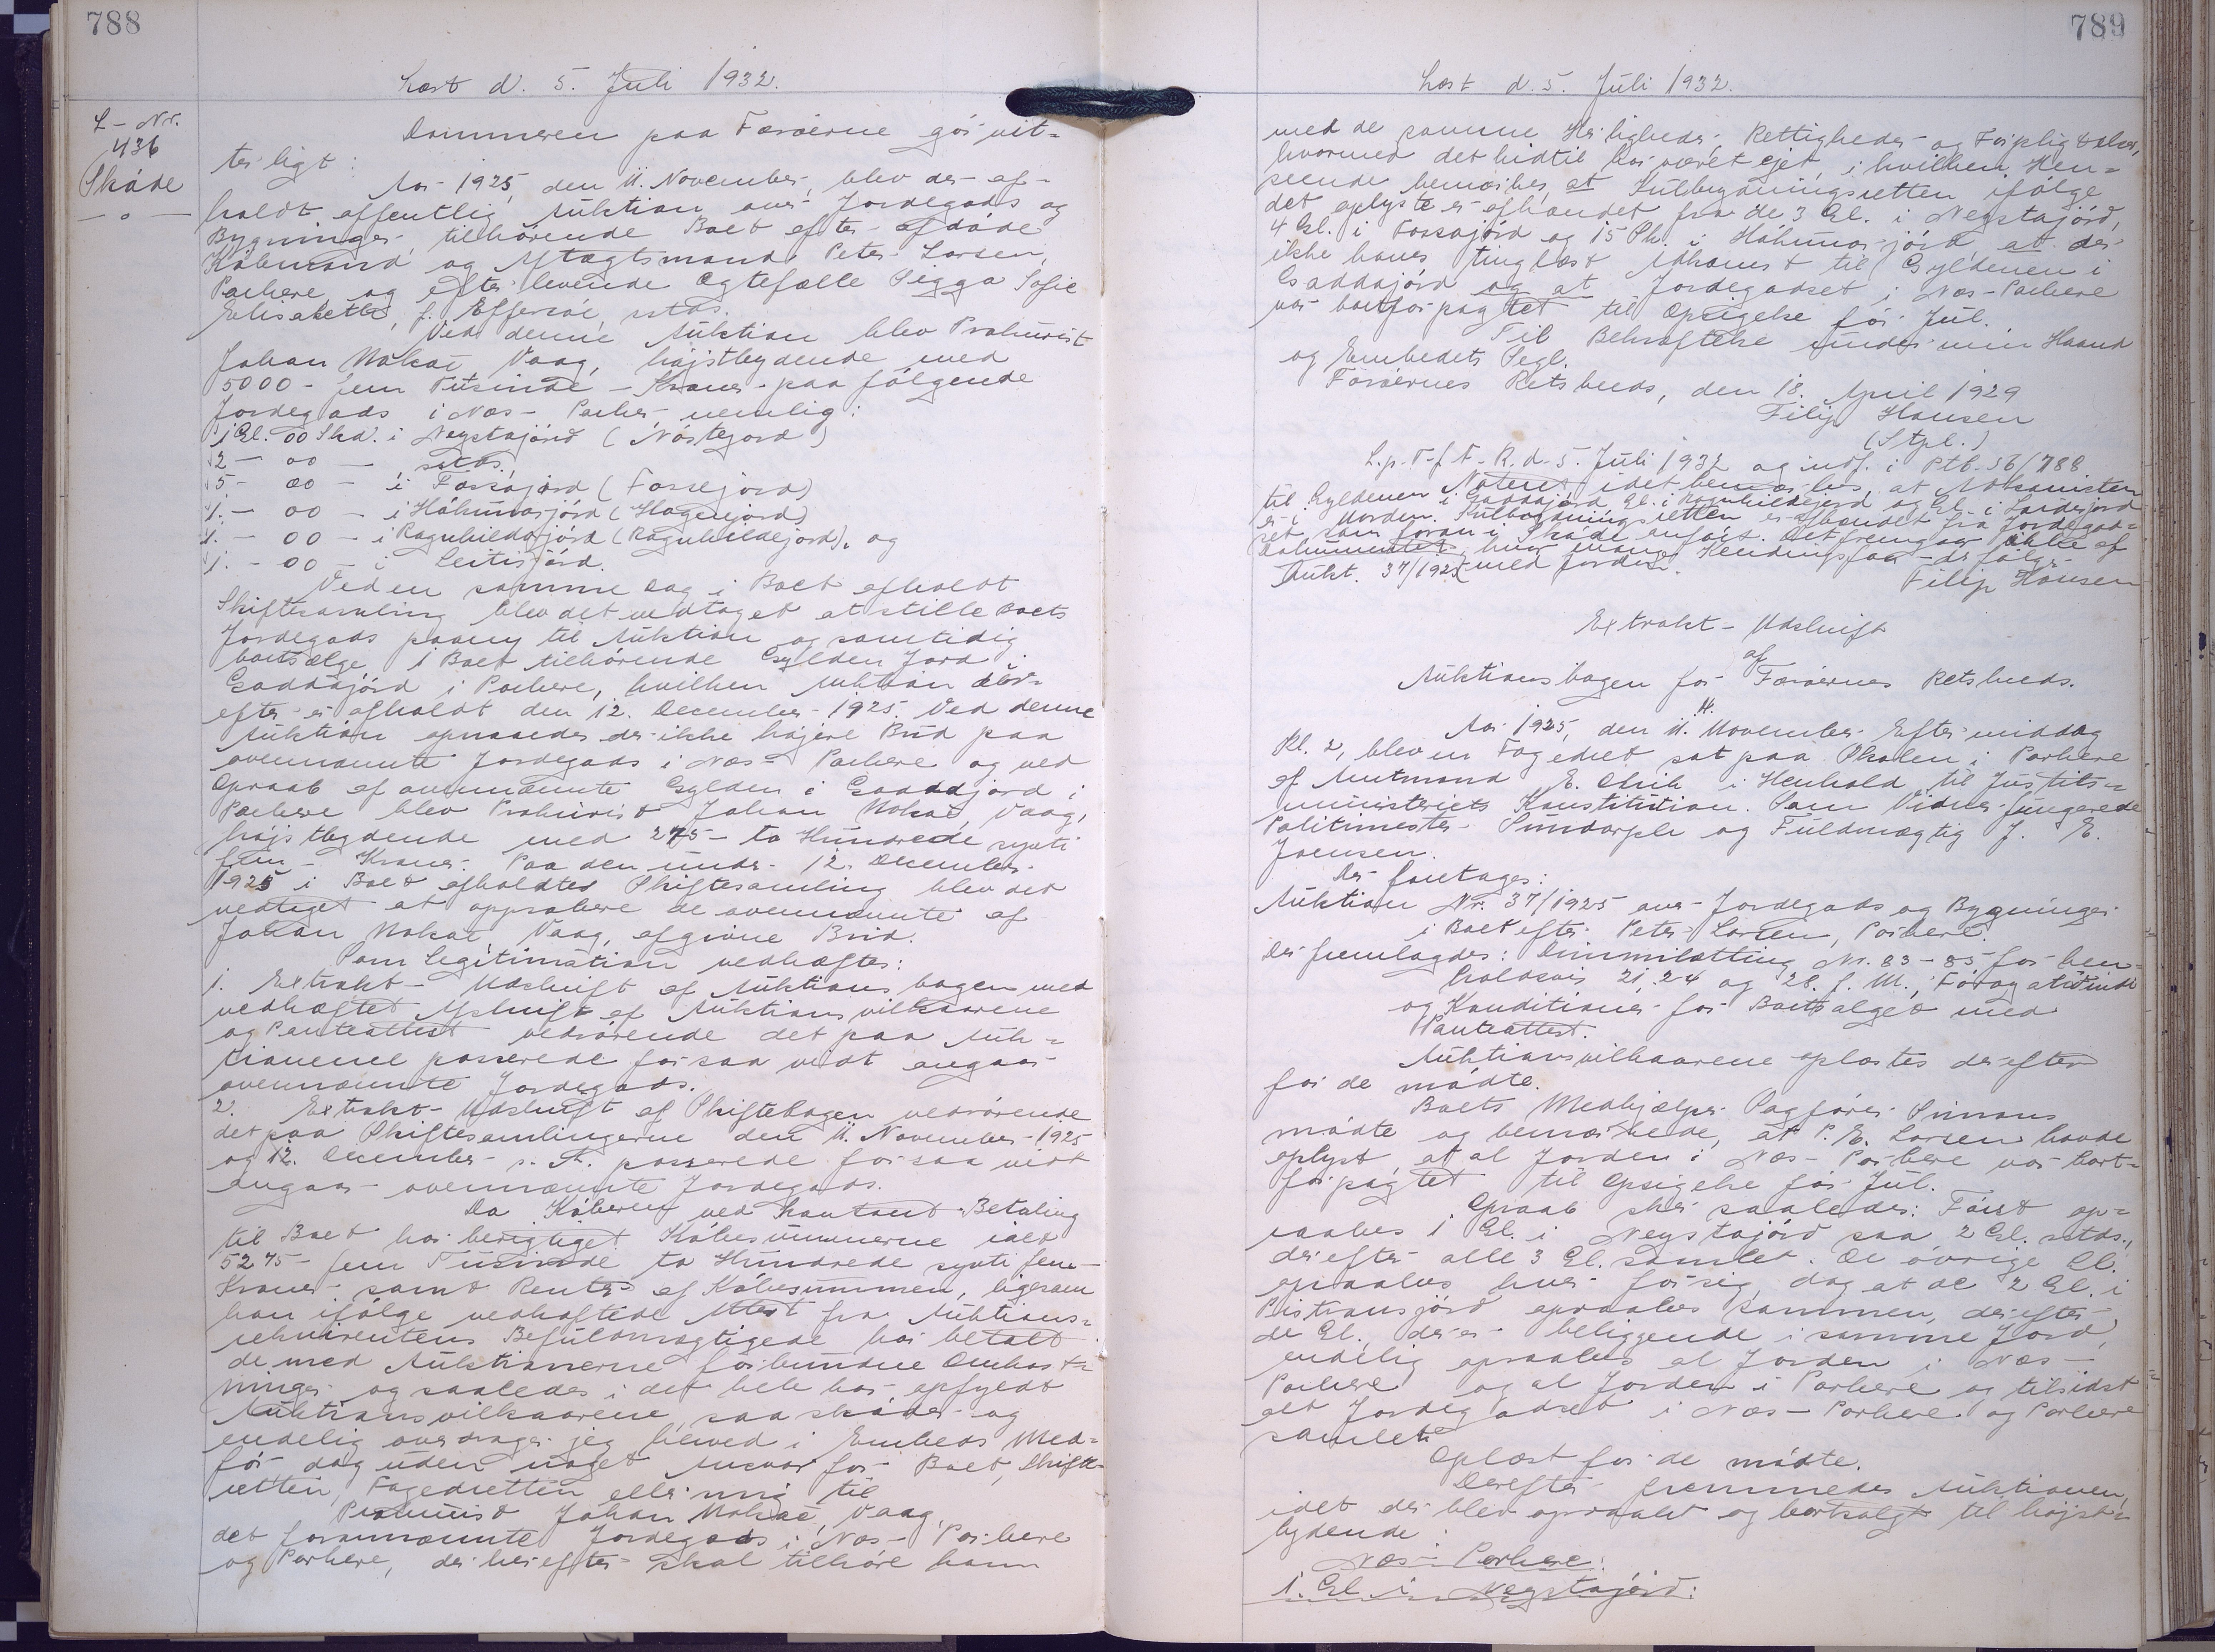 788
Læst d. 5. Juli 1932.
L-Nr.
436
Skøde
Dommeren paa Færøerne gör vit-
terligt:
Aar 1925, den 11. November, blev der af-
holdt offentlig Auktion over Jordegods og
Bygninger, tilhörende Boet efter afdöde
Köbmand og Aftægtsmand Peter Larsen,
Porkere og efterlevende Ægtefælle Sigga Sofie
Elisabeth, f. Effersöe, sstds.
Ved denne Auktion blev Prokurist
Johan Mohae, Vaag, höjstbydende med
5000 - fem Tusinde - Kroner paa fölgende
Jordegods i Næs-Porkere nemlig:
1 Gl. 00 Skd. i Neystajörd (Nöstegord)
2 - 00 - sstds.
5 - 00 - i Forsajörd (Forsejord)
1 - 00 - i Háhúnarjörd (Hagejord)
1. - 00 - i Ragnhildajörd (Ragnhildejord), og
1. - 00 - i Leitisjörd.
Ved en samme Dag i Boet afholdt
Skiftesamling blev det vedtaget at stille Boets
Jordegods paany til Auktion og samtidig
bortsælge 1 Boet tilhörende Gylden Jord i
Gaddajörd i Porkere, hvilken Auktion der-
efter er afholdt den 12. December 1925. Ved denne
Auktion opnaaedes der ikke höjere Bud paa
ovennævnte Jordegods i Næs-Porkere og ved
Opraab af ovennævnte Gylden i Gaddajörd i
Porkere blev Prokurist Johan Mohae, Vaag,
höjstbydende med 275 - to Hundrede syvti
fem - Kroner. Paa den under 12. December
1925 i Boet afholdtes Skiftesamling blev det
vedtaget at approbere de ovennævnte af
Johan Mohae, Vaag, afgivne Bud.
Som Legitimation vedhæftes:
1. Extrakt-Udskrift af Auktionsbogen med
vedhæftet Afskrift af Auktionsvilkaarene
og Panteattest vedrörende det paa Auk-
tionerne passerede forsaavidt angaar
ovennævnte Jordegods.
2. Extrakt-Udskrift af Skiftebogen vedrörende
det paa Skiftesamlingerne den 11. November 1925
og 12. December s. A. passerede forsaavidt
angaar ovennævnte Jordegods.
Da Köberen ved kontant Betaling
til Boet har berigtiget Köbesummerne ialt
5275 - fem Tusinde to Hundrede syvti fem -
Kroner samt Renter af Köbesummen, ligesom
han ifölge vedhæftede Attest fra Auktions-
rekvirentens Befuldmægtigede har betalt
de med Auktionerne forbundne Omkost-
ninger og saaledes i det hele har opfyldt
Auktionsvilkaarene, saa sköder og
endelig overdrager jeg herved i Embeds Med-
för dog uden noget Ansvar for Boet, Skifte-
retten, Fogedretten eller mig til
Prokurist Johan Mohae, Vaag,
det forannævnte Jordegods i Næs-Porkere
og Porkere, der herefter skal tilhöre ham
789
Læst d. 5. Juli 1932.
med de samme Herligheder, Rettigheder og Forpligtelser,
hvormed det hidtil har været ejet, i hvilken Hen-
seende bemærkes, at Hútbygningsretten ifölge
det oplyste er afhændet fra de 3 Gl. i Neystajörd,
4 Gl. i Forsajörd og 15 Sk. i Háhúnarjörd, at der
ikke haves tinglæst Adkomst til Gyldenen i
Gaddajörd og at Jordegodset i Næs-Porkere
var bortforpagtet til Opsigelse för Jul.
Til Bekræftelse under min Haand
og Embedets Segl.
Færöernes Retskreds, den 18. April 1929
Filip Hansen
(Stpl.)
L.p.T.f.F.R. d. 5. Juli 1932 og indf. i Ptb. 56/788.
Noteret idet bemærkes, at Adkomsten
til Gyldenen i Gaddajörd, Gl. i Ragnhildejord og Gl. i Leidisjord
er i Orden. Hutbygningsretten er afhændet fra Jordegod-
set som foran i Skøde anförs. Det fremgaar ikke af
Dokumentet, hvor mange Kendingsfaar der fölger
Aukt. 37/1925 med Jorden.
Filip Hansen
Extrakt-Udskrift
af
Auktionsbogen for Færöernes Retskreds.
Aar 1925, den 11. November Eftermiddag
Kl. 2, blev en Fogedret sat paa Skolen i Porkere
af Amtmand E. Chrih i Henhold til Justits-
ministeriets Konstitution. Som Vidner fungerede
Politimester Sundorph og Fuldmægtig J. E.
Joensen.
Der foretages:
Auktion Nr. 37/1925 over Jordegods og Bygninger
i Boet efter Peter Larsen, Porkere.
Der fremlagdes: Dimmilætting Nr. 83-85 for hen-
holdsvis 21, 24 og 28. f. M., Föroyatidindi
og Konditioner for Bortsalget med
Panteattest.
Auktionsvilkaarene oplæstes derefter
for de mödte.
Boets Medhjælper Sagförer Simons
mödte og bemærkede, at P. E. Larsen havde
oplyst, at al Jorden i Næs-Porkere var bort-
forpagtet til Opsigelse för Jul.
Opraab sker saaledes: Först op-
raabes 1 Gl. i Neystajörd saa 2 Gl. sstds.,
derefter alle 3 Gl. samlet. De övrige Gl.
opraabes hver for sig, dog at de 2 Gl. i
Peistiansjörd opraabes sammen, derefter
de Gl. der er beliggende i samme Jord,
endelig opraabes al Jorden i Næs-
Porkere og al Jorden i Porkere og tilsidst
alt Jordegodset i Næs-Porkere og Porkere
samlet.
Oplæst for de mödte.
Derefter fremmedes Auktionen,
idet der blev opraabt og bortsolgt til höjst-
bydende:
Næs-Porkere:
1. Gl. i Neystajörd: